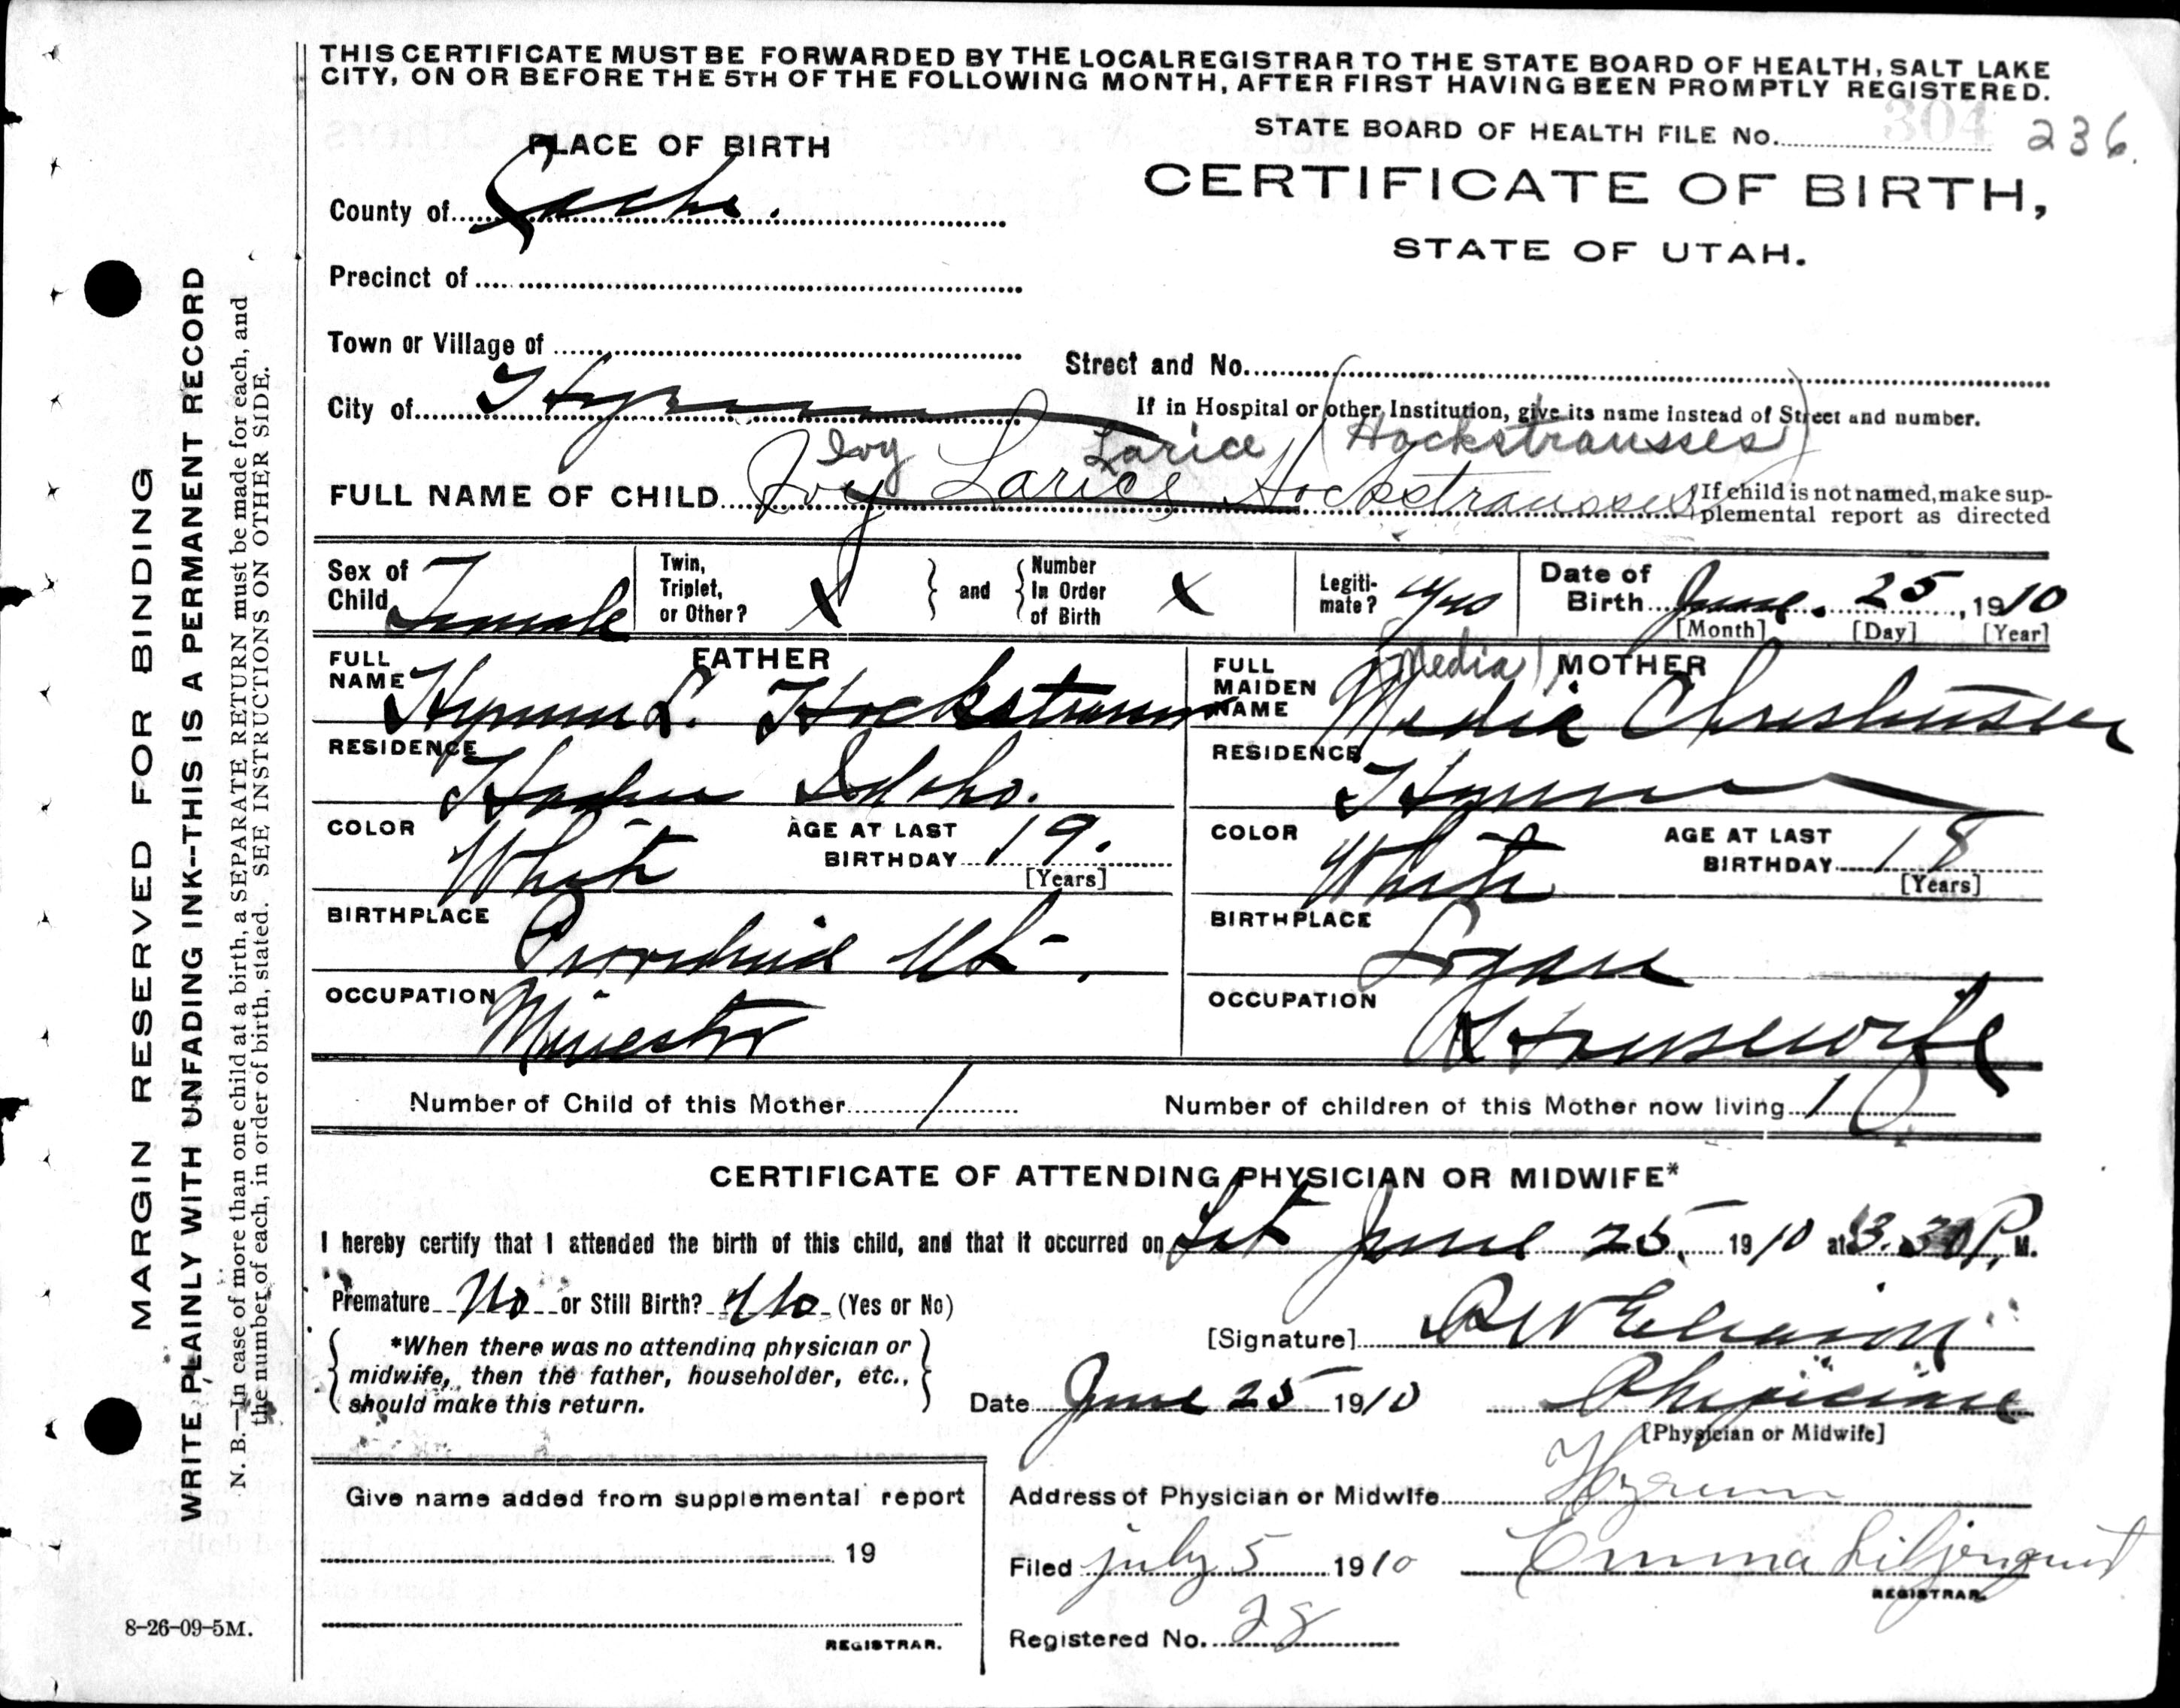 THIS CERTIFICATE MUST BE FORWARDED BY THE LOCAL REGISTRAR TO THE STATE BOARD OF HEALTH, SALT LAKE
CITY, ON OR BEFORE THE 5TH OF THE FOLLOWING MONTH, AFTER FIRST HAVING BEEN PROMPTLY REGISTERED.
STATE BOARD OF HEALTH FILE No. 304 236.
PLACE OF BIRTH
CERTIFICATE OF BIRTH,
STATE OF UTAH.
County of Cache.
Precinct of
Town or Village of
Street and No.
City of Hyrum
If in Hospital or other Institution, give its name instead of Street and number.
Larice (Hockstrausses)
FULL NAME OF CHILD Joy Larice Hockstrausses
If child is not named, make sup-
plemental report as directed
Sex of Child Female
Twin, Triplet, or Other? X and Number In Order of Birth X
Legiti-mate? Yes
Date of Birth June. 25, 1910
[Month] [Day] [Year]
FATHER
FULL NAME Hyrum L. Hockstrausser
RESIDENCE Idaho.
COLOR White AGE AT LAST BIRTHDAY 19.
[Years]
BIRTHPLACE Providence Ut.
OCCUPATION Minester
(Media) MOTHER
FULL MAIDEN NAME Media Christensen
RESIDENCE Hyrum
COLOR White AGE AT LAST BIRTHDAY 18
[Years]
BIRTHPLACE Logan
OCCUPATION Housewife
Number of Child of this Mother 1 Number of children of this Mother now living 1
CERTIFICATE OF ATTENDING PHYSICIAN OR MIDWIFE*
I hereby certify that I attended the birth of this child, and that it occurred on Sat June 25, 1910 at 3.30 P. M.
Premature No or Still Birth? No (Yes or No)
*When there was no attending physician or
midwife, then the father, householder, etc.,
should make this return.
[Signature]
Date June 25 1910 Physician
[Physician or Midwife]
Address of Physician or Midwife Hyrum
Filed july 5 1910 Emma Liljenquist
REGISTRAR.
Registered No. 28
Give name added from supplemental report
19
REGISTRAR.
8-26-09-5M.
MARGIN RESERVED FOR BINDING
WRITE PLAINLY WITH UNFADING INK--THIS IS A PERMANENT RECORD
N. B.—In case of more than one child at a birth, a SEPARATE RETURN must be made for each, and
the number of each, in order of birth, stated. SEE INSTRUCTIONS ON OTHER SIDE.